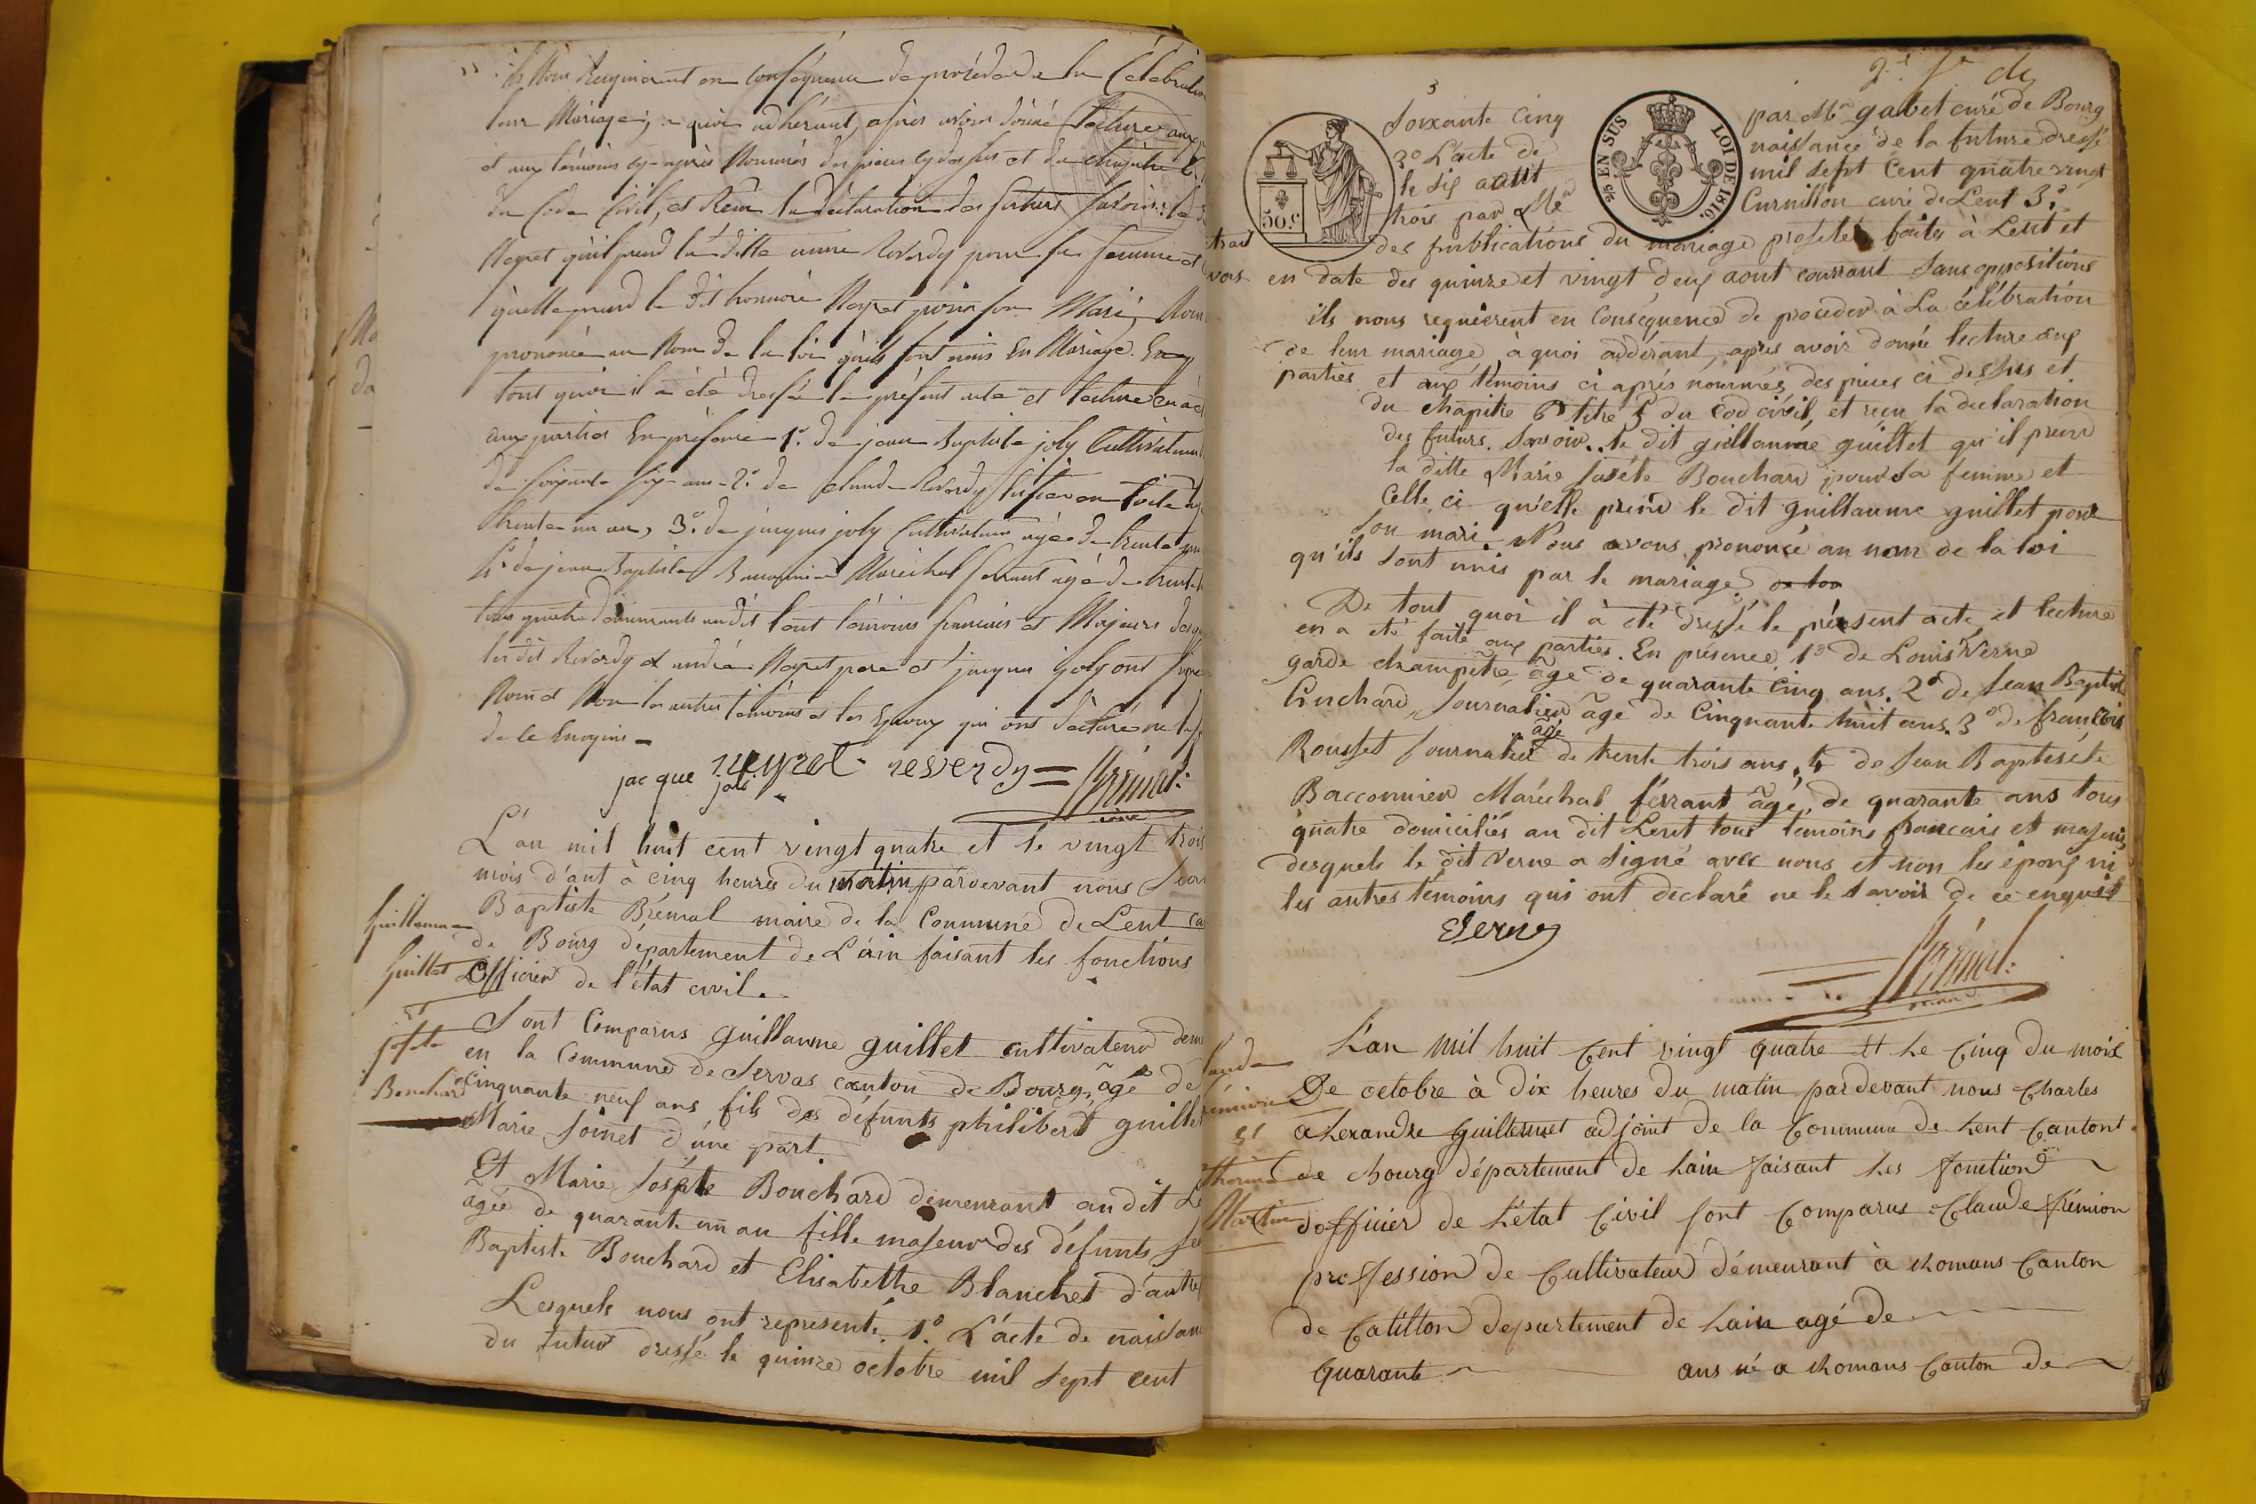 ils Nous Requierent en Conséquence de procéder de la Célébration
leur Mariage; a quoi adhérant, après avoir donné lecture aux
et aux témoins cy-après Nommés des pieces cy dessus et du chapitre 6.
du Code Civil, et Reçu la déclaration des futurs savoir: le
Neyret qu'il prend la ditte anne Reverdy pour sa femme et
qu'elle prend le dit honnoré Neyret pour son Mari, Nous
prononcé au Nom de la loi qu'ils sont unis En Mariage. En
tout quoi il a été dressé le présent acte et lecture en a
aux parties En présence 1.° de jean Baptiste joly Cultivateur
de soixante six ans 2.° de claude Reverdy tissier en toile
trente un ans, 3.° de jacques joly Cultivateur agée de trente
4.° de jean Baptiste Baconnier Maréchal ferrant agé de trente
tous quatre demeurants au dit lent témoins francais et Majeurs
les dit Reverdy et andré Neyret pere et jacques joly ont signé
Nous et Non les autres témoins et les Epoux qui ont déclaré ne
de le Enquis
jacque joli neyret reverdy Brémal
maire
L'an mil huit cent vingt quatre et le vingt trois
mois d'aut à cinq heures du matin pardevant nous Jean
Baptiste Brémal maire de la Commune de Lent
de Bourg département de L'ain faisant les fonctions
Officier de l'état civil.
Guillaume
Guillet
et
josete
Bouchard
Sont Comparus Guillaume guillet cultivateur
en la Commune de Servas canton de Bourg, âgé de
cinquante neuf ans fils des défunts philibert guillet
Marie Joinet d'une part
Et Marie Josete Bouchard demeurant au dit
âgée de quarante un an fille majeur des défunts
Baptiste Bouchard et Elisabethe Blanchet d'autre
Lesquels nous ont représenté. 1.° L'acte de naissan
du futur dressé le quinze octobre mil sept cent
soixante cinq par Mr gabet curé de Bourg
2° L'acte de naissance de la future dressé
le six aout mil sept cent quatre vingt
trois par Mr Curnillon curé de Lent 3.°
des publications du mariage projeter faites à Lent et
en date des quinze et vingt deux aout courrant sans oppositions
ils nous requièrent en Conséquence de proceder à La célébration
de leur mariage, à quoi addérant, apres avoir donné lecture aux
parties et aux témoins ci après nommés, des pieces ci dessus et
du chapitre 6 titre 5 du cod civil, et reçu la declaration
des futurs. Savoir.. le dit guillaume guillet qu'il prend
la ditte Marie Josete Bouchard pour sa femme et
Celle ci qu'elle prend le dit guillaume guillet pour
son mari. Nous avons prononcé au nom de la loi
qu'ils sont unis par le mariage. de tou
De tout quoi il à été dressé le présent acte, et lecture
en a été faite aux parties. En présence, 1° de Louis Verne
garde champêtre âgé de quarante cinq ans. 2° de Jean Baptiste
Guichard, Journalier âgé de Cinquante huit ans. 3° de françois
Rousset journalier âgé de trente trois ans. 4 de Jean Baptiste
Bacconnier Maréchal férrant âgé, de quarante ans tous
quatre domiciliés au dit Lent tous témoins francais et majeurs
desquels le dit Verne a signé avec nous et non les époux ni
les autres témoins qui ont declaré ne le savoir de ce enquis
Verne
Brémal
L'an mil huit Cent vingt quatre et Le Cinq du mois
De octobre à dix heures du matin pardevant nous Charles
alexandre Guillemet adjoint de la Commune de Lent Canton
de Bourg département de Lain faisant les fonction
dofficier de L'état Civil sont Comparus Claude frémion
proffession de Cultivateur démeurant à Romans Canton
de Catillon département de Lain agé de
Quarante ans né a Romans Canton de
et
Martin
50.c
2/5 EN SUS
LOI DE 1816.